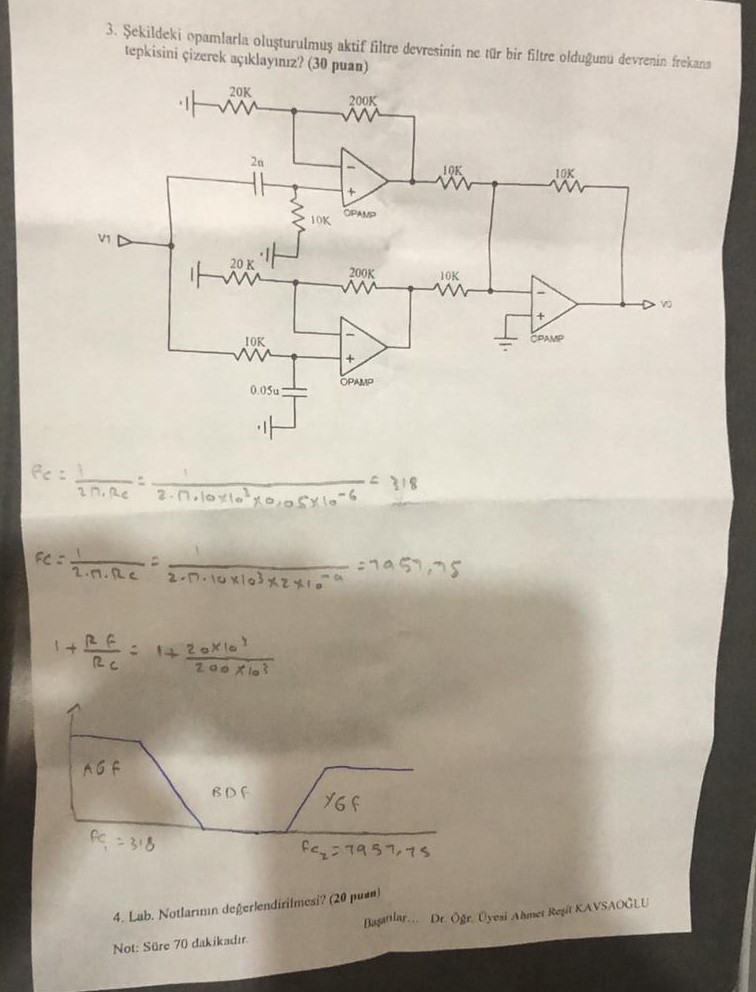 3. Şekildeki opamlarla oluşturulmuş aktif filtre devresinin ne tür bir filtre olduğunu devrenin frekans
tepkisini çizerek açıklayınız? (30 puan)
20K
200K
2n
10K
10K
10K
OPAMP
V1
20 K
200K
10K
OPAMP
10K
OPAMP
V0
0.05u
fc = 1 / 2π.Rc = 1 / 2.π.10x10³x0,05x10⁻⁶ = 318
fc = 1 / 2.π.Rc = 1 / 2.π.10x10³x2x10⁻⁹ = 7957,75
1 + RF / Rc = 1 + 20x10³ / 200x10³
AGF
BDF
YGF
fc₁ = 318
fc₂ = 7957,75
4. Lab. Notlarının değerlendirilmesi? (20 puan)
Başarılar... Dr. Öğr. Üyesi Ahmet Reşit KAVSAOĞLU
Not: Süre 70 dakikadır.